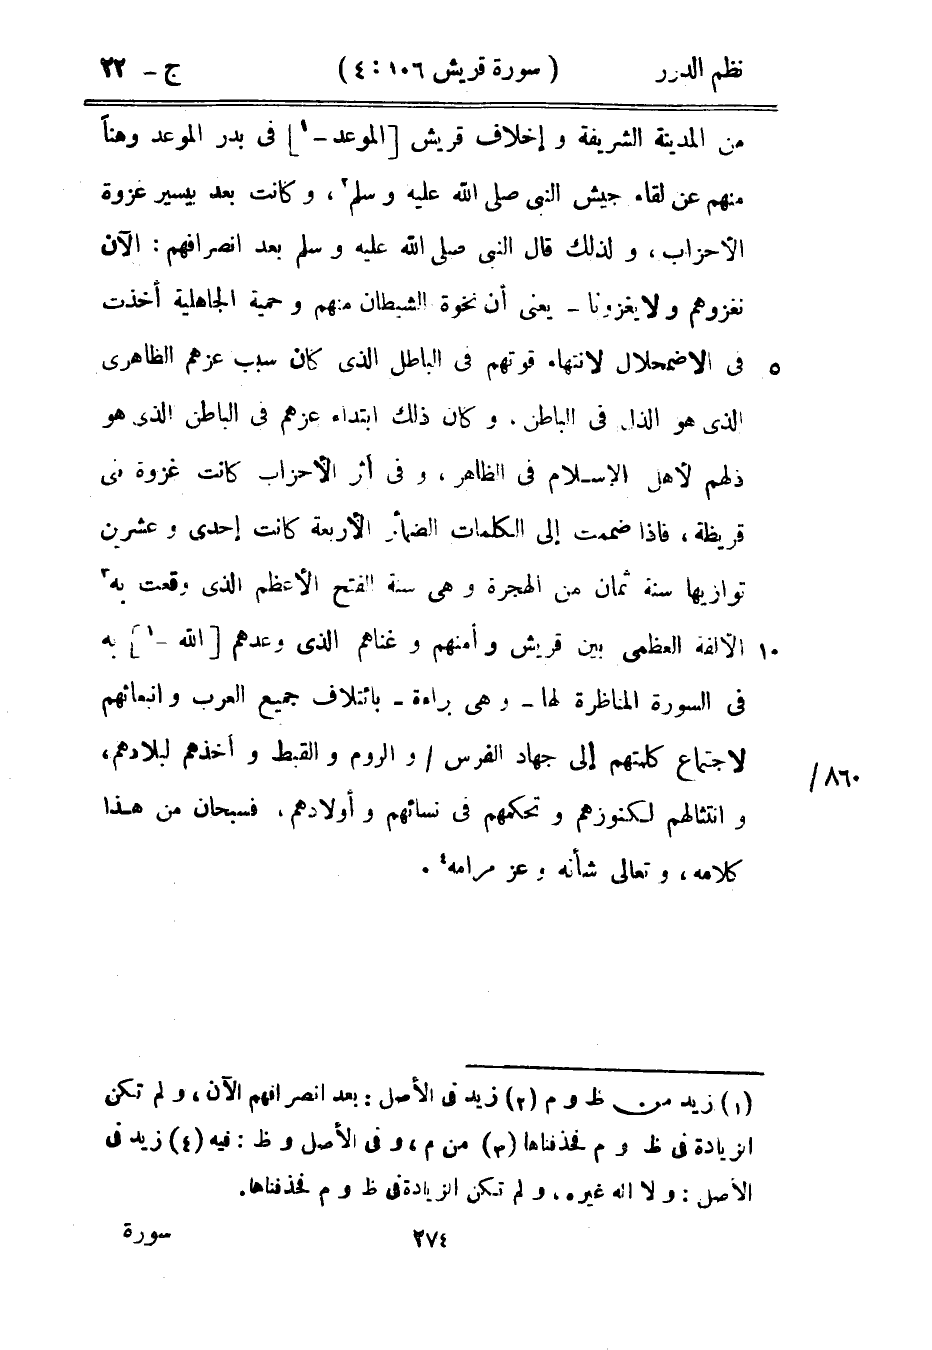 نظم الدرر ( سورة قريش ١٠٦ : ٤ ) ج ـ ٢٢
من المدينة الشريفة و إخلاف قريش [الموعد ـ ١] فى بدر الموعد وهناً
منهم عن لقاء جيش النبى صلى الله عليه و سلم٢ ، و كانت بعد بيسير غزوة
الأحزاب ، و لذلك قال النبى صلى الله عليه و سلم بعد انصرافهم : الآن
نغزوهم و لا يغزونا ـ يعنى أن نخوة الشيطان منهم و حمية الجاهلية أخذت
٥ فى الاضمحلال لانتهاء قوتهم فى الباطل الذى كان سبب عزهم الظاهرى
الذى هو الذل فى الباطن . و كان ذلك ابتداء عزهم فى الباطن الذى هو
ذلهم لأهل الإسلام فى الظاهر ، و فى أثر الأحزاب كانت غزوة بنى
قريظة ، فاذا ضممت إلى الكلمات الضمائر الأربعة كانت إحدى و عشرين
توازيها سنة ثمان من الهجرة و هى سنة الفتح الأعظم الذى وقعت به٣
١٠ الآلفة العظمى بين قريش و أمنهم و غناهم الذى وعدهم [الله ـ ١] به
فى السورة المناظرة لها ـ و هى براءة ـ بائتلاف جميع العرب و انبعاثهم
لاجتماع كلمتهم إلى جهاد الفرس / و الروم و القبط و أخذهم لبلادهم، /٨٦٠
و انتثالهم لكنوزهم و تحكمهم فى نسائهم و أولادهم ، فسبحان من هذا
كلامه ، و تعالى شأنه و عز مرامه٤ .
(١) زيد من ظ و م (٢) زيد فى الأصل : بعد انصرافهم الآن ، و لم تكن
الزيادة فى ظ و م فحذفناها (٣) من م ، و فى الأصل و ظ : فيه (٤) زيد فى
الأصل : و لا اله غيره ، و لم تكن الزيادة فى ظ و م فحذفناها.
٢٧٤ سورة